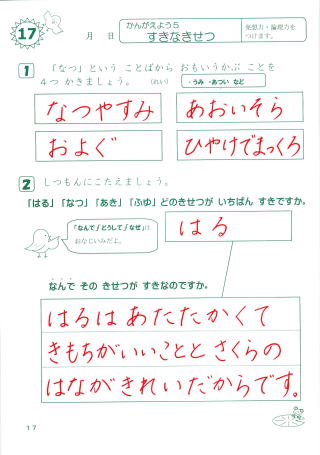 17
月 日
かんがえよう5
すきなきせつ
発想力・論理力を
つけます。
1 「なつ」という ことばから おもいうかぶ ことを
4つ かきましょう。 (れい) ・うみ ・あつい など
なつやすみ
あおいそら
およぐ
ひやけでまっくろ
2 しつもんにこたえましょう。
「はる」「なつ」「あき」「ふゆ」どのきせつが いちばん すきですか。
「なんで／どうして／なぜ」は
おなじいみだよ。
はる
なんで その きせつが すきなのですか。
はるは あたたかくて
きもちがいいことと さくらの
はながきれいだからです。
17